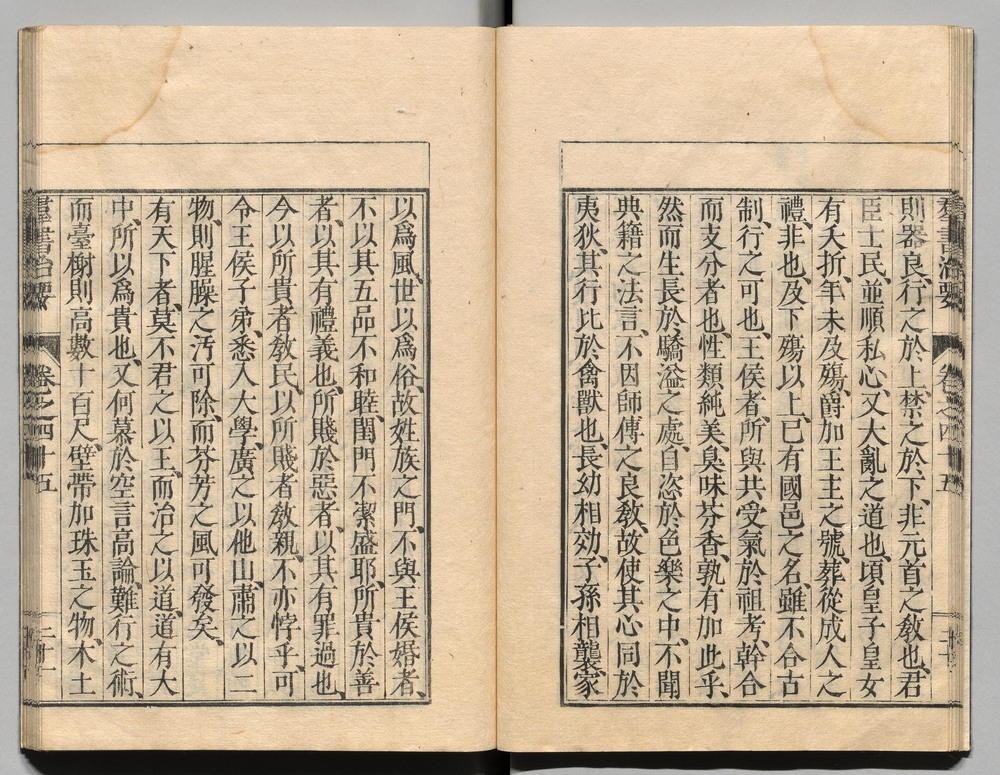 群書治要 卷之四十五
則器良、行之於上、禁之於下、非元首之敎也、君
臣士民、並順私心、又大亂之道也、頃皇子皇女
有夭折、年未及殤、爵加王主之號、葬從成人之
禮、非也、及下殤以上、已有國邑之名、雖不合古
制、行之可也、王侯者、所與共受氣於祖考、幹合
而支分者也、性類純美、臭味芬香、孰有加此乎、
然而生長於驕溢之處、自恣於色樂之中、不聞
典籍之法言、不因師傅之良敎、故使其心同於
夷狄、其行比於禽獸也、長幼相効、子孫相襲、家
以爲風、世以爲俗、故姓族之門、不與王侯婚者、
不以其五品不和睦、閨門不潔盛耶、所貴於善
者、以其有禮義也、所賤於惡者、以其有罪過也、
今以所貴者敎民、以所賤者敎親、不亦悖乎、可
令王侯子弟、悉入大學、廣之以他山、肅之以二
物、則腥臊之汚可除、而芬芳之風可發矣、
有天下者、莫不君之以王、而治之以道、道有大
中、所以爲貴也、又何慕於空言高論、難行之術、
而臺榭則高數十百尺、壁帶加珠玉之物、木土
群書治要 卷之四十五